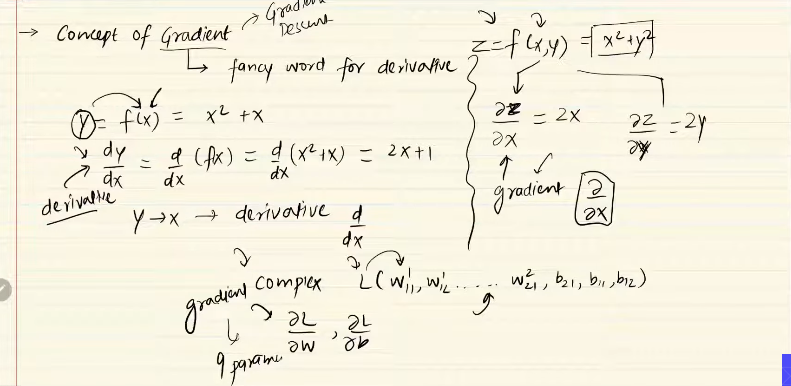 → Concept of Gradient → Gradient Descent
↳ fancy word for derivative
y = f(x) = x² + x
dy/dx = d/dx (f(x)) = d/dx (x²+x) = 2x+1
derivative
y → x → derivative d/dx
gradient complex L(w¹₁₁, w¹₁₂ ...... w²₂₁, b₂₁, b₁₁, b₁₂)
9
∂L/∂w , ∂L/∂b
9 param
z = f(x,y) = x²+y²
∂z/∂x = 2x ∂z/∂y = 2y
gradient ∂/∂x